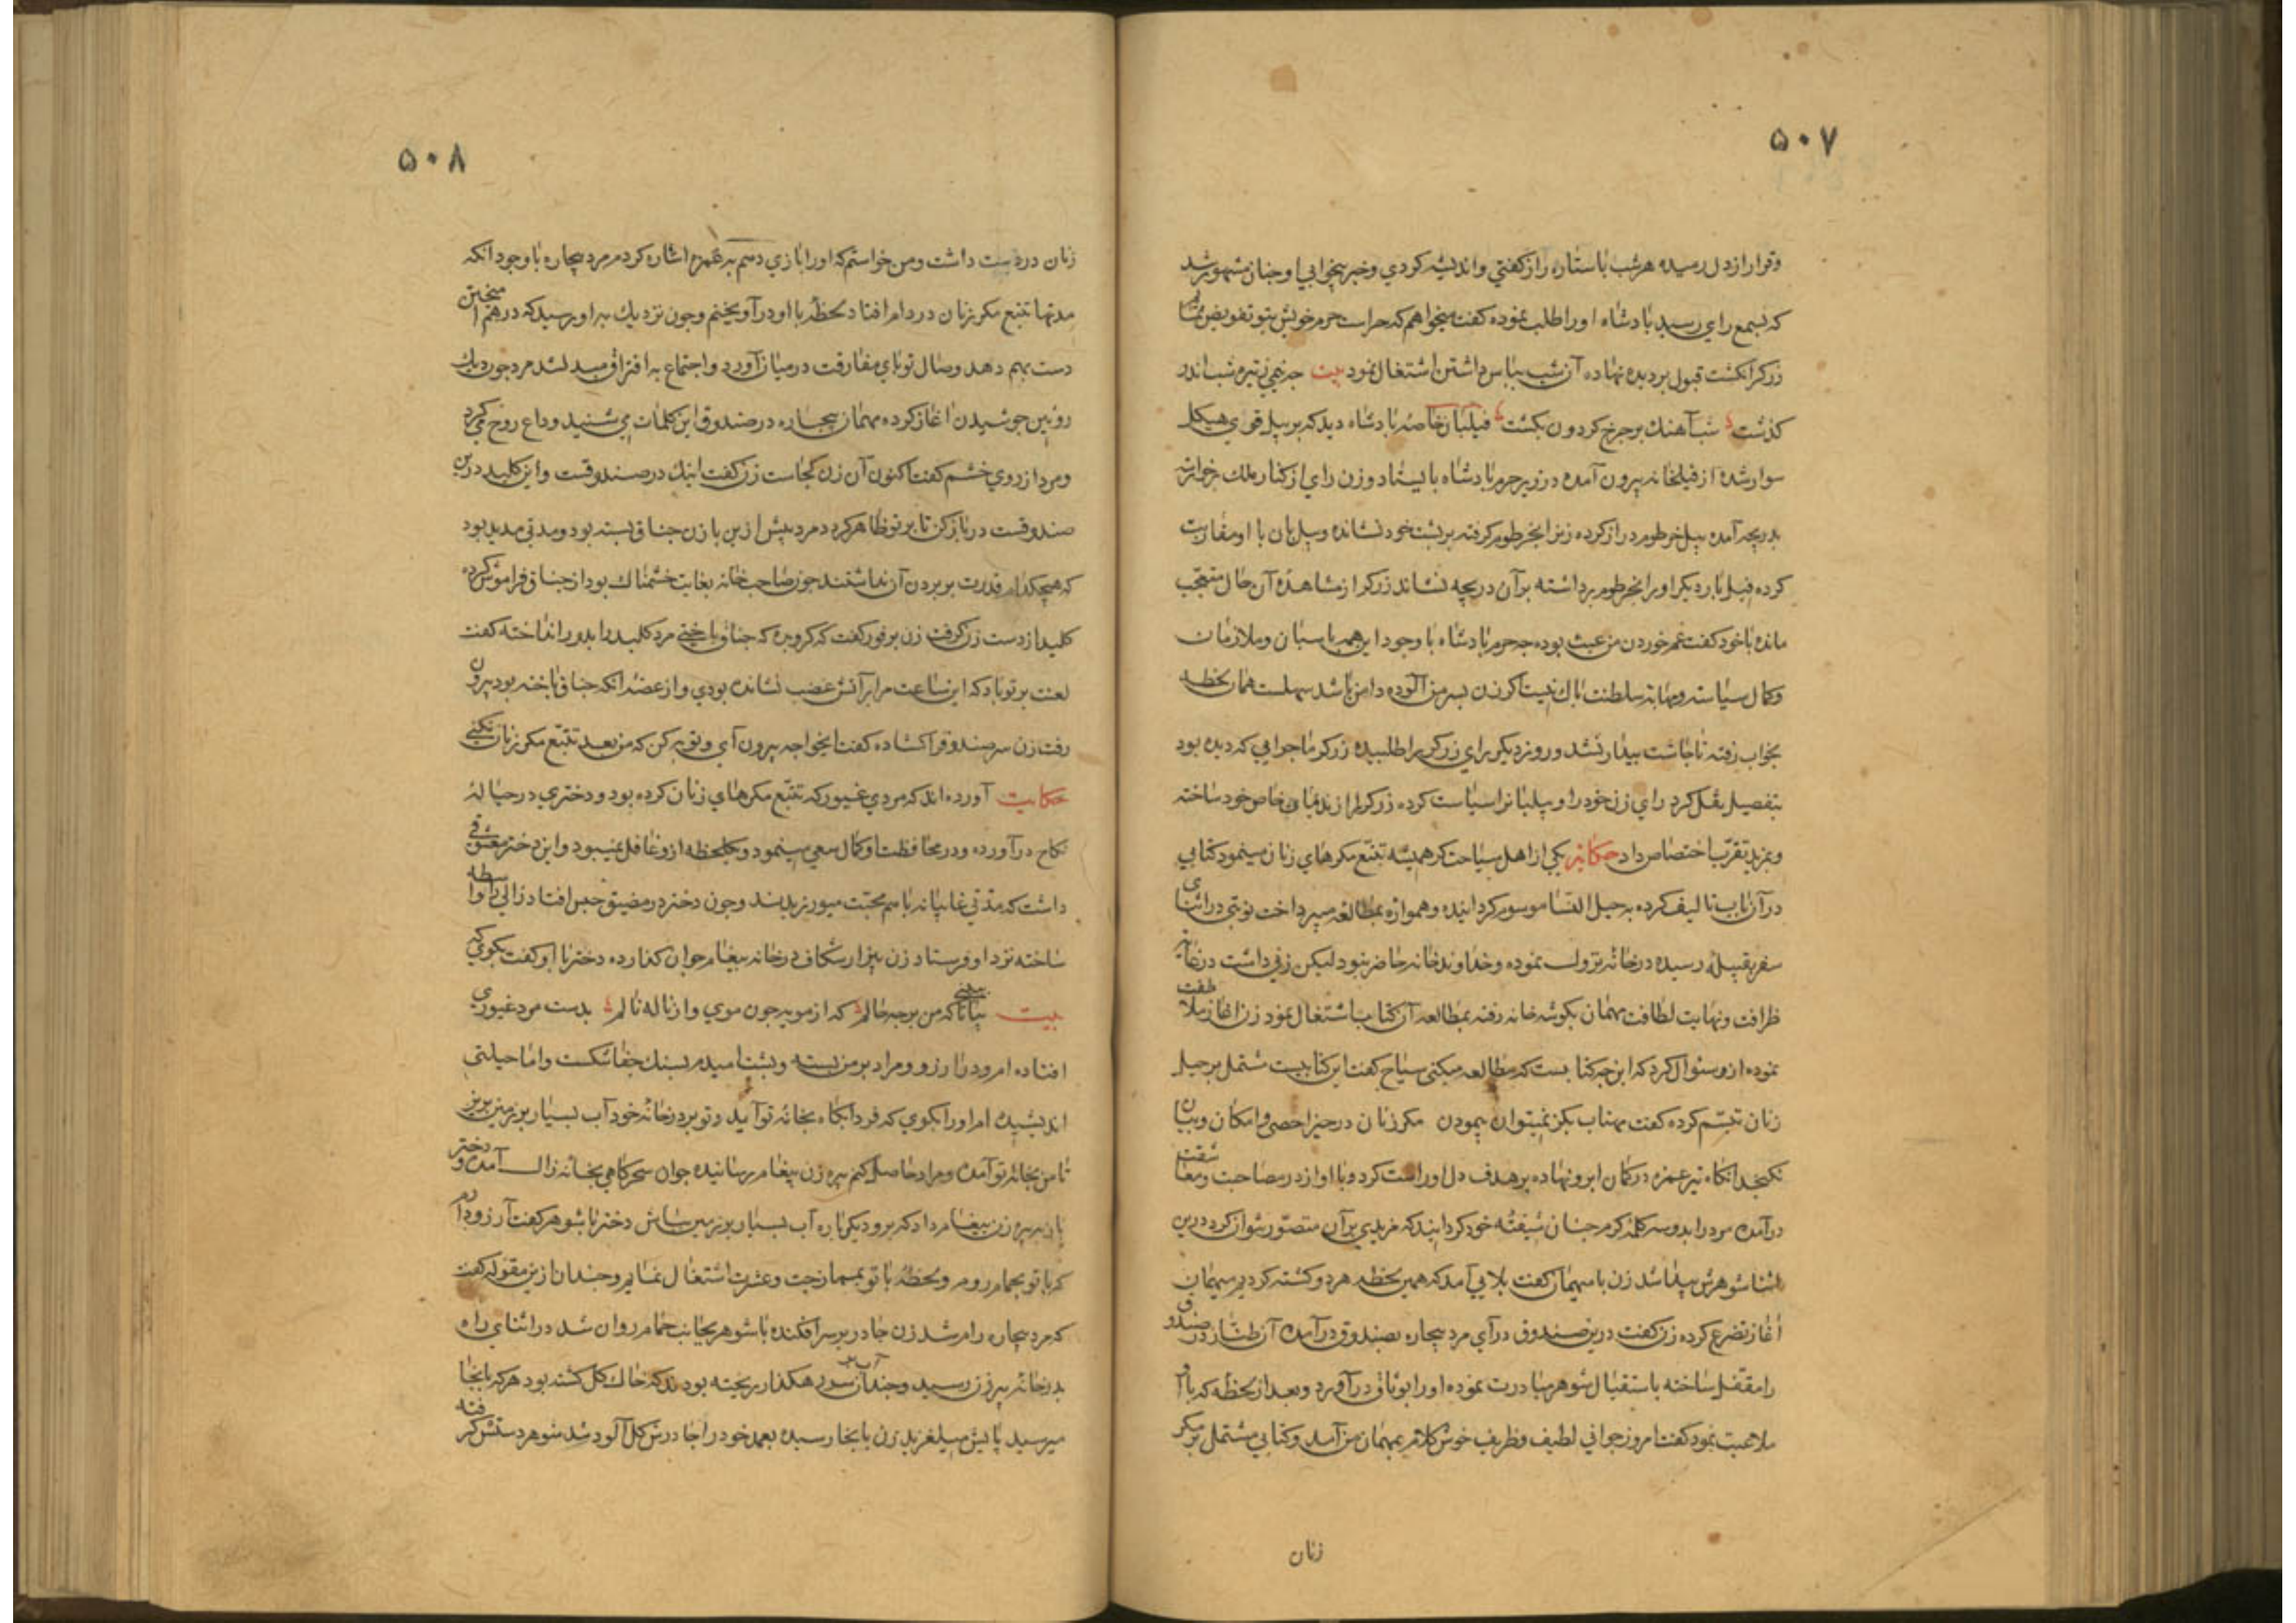 ۵۰۷
وقرار از دل رمیده هر شب با ستاره راز گفتی و اندیشه کردی وخبر بیخوابی او چنان مشهور شد
که بسمع رای رسید پادشاه او را طلب نموده گفت میخواهم که حراست حرم خویش بتو تفویض نمایم
زرکر انکشت قبول بر دیده نهاده آن شب بپاس داشتن اشتغال نمود بیت چو نیمی ز تیره شب اندر
کذشت شب آهنك بر چرخ کردون بکشت فیلبان خاصه پادشاه دید که بر پیل قوی هیکل
سوار شده از فیلخانه بیرون آمده در زیر حرم پادشاه بایستاد وزن رای از کنار ملك برخواسته
بدریچه آمده پیل خرطوم دراز کرده زنرا بخرطوم کرفته بر پشت خود نشانده وپیل بان با او مقاربت
کرده فیل بار دیکر او را بخرطوم برداشته برآن دریچه نشاند زرکر از مشاهدۀ آن حال متعجب
مانده با خود گفت غم خوردن من عبث بوده چه حرم پادشاه با وجود این همه پاسبان وملازمان
وکمال سیاست ومهابت سلطنت باك نیست اکر زن پسر من آلوده دامن باشد سهلست همان لحظه
بخواب رفته تا چاشت بیدار نشد و روز دیکر رای زرکر را طلبیده زرکر ماجرایی که دیده بود
بتفصیل نقل کرد رای زن خود را و پیلبانرا سیاست کرده زرکر را از ندمای خاص خود ساخته
وبمزید تقرب اختصاص داد حکایت یکی از اهل سیاحت که همیشه تتبع مکرهای زنان مینمود کتابی
در آن باب تالیف کرده به حیل النسا موسوم کردانیده وهمواره بمطالعه میپرداخت نوبتی در اثنای
سفر بقبیلۀ رسیده در خانۀ نزول نموده وخداوند خانه حاضر نبود لیکن زنی داشت در غایة
ظرافت ونهایت لطافت مهمان بکوشه خانه رفته بمطالعه آن کتاب اشتغال نمود زن اغاز ملاطفت
نموده ازو سئوال کرد که این چه کتابست که مطالعه میکنی سیاح گفت این کتابیست مشتمل بر حیل
زنان تبسّم کرده گفت مهتاب بکز نمیتوان پیمودن مکر زنان در حیز احصی وامکان وبیان
نکنجد انکاه تیر غمزه در کمان ابرو نهاده بر هدف دل او راست کرد وبا او از در مصاحبت ومعاشقت
درآمده مرد را بدو سه کلمۀ کرم چنان شیفتۀ خود کردانید که مزیدی بر آن متصوّر نتوان کرد درین
اثنا شوهرش پیدا شد زن با میهمان گفت بلایی آمد که همین لحظه هر دو کشته کردیم میهمان
اغاز تضرع کرده زن گفت درین صندوق درآی مرد بیچاره بصندوق درآمده آن طنّاز در صندوق
را مقفل ساخته باستقبال شوهر مبادرت نموده او را بوثاق درآورد وبعد از لحظه که با او
ملاعبت نمود گفت امروز جوانی لطیف وظریف خوش کلام بمهمان من آمد وکتابی مشتمل بر مکر
زنان
۵۰۸
زنان در دست داشت ومن خواستم که او را بازی دهم به غمزه اشاره کردم مرد بیچاره با وجود آنکه
مدتها تتبع مکر زنان در دام افتاد لحظه با او درآویختم وچون نزدیك به او رسید که درهم آمیختن
دست بهم دهد وصال تو پای مفارقت در میان آورد واجتماع به افتراق مبدل شد مرد چون دیك
روئین جوشیدن اغاز کرده مهمان بیچاره در صندوق این کلمات می شنید وداع روح می کرد
ومرد از روی خشم گفت اکنون آن زن کجاست زن گفت اینك در صندوقست واین کلید درین
صندوقست در باز کن تا بر تو ظاهر کردد مرد پیش ازین با زن جناق بسته بود ومدتی مدید بود
که هیچکدام قدرت بر بردن آن نداشتند چون صاحب خانه بغایت خشمناك بود از جناق فراموش کرده
کلید از دست زن کرفت زن بر فور گفت که کرو بده که جناق باختی مرد کلید را بدور انداخته گفت
لعنت بر تو باد که این ساعت مرا بر آتش غضب نشانده بودی و از غصه انکه جناق باخته بود بیرون
رفت زن سر صندوقرا کشاده گفت ایخواجه بیرون آی وتوبه کن که من بعد تتبع مکر زنان نکنی
حکایت آورده اند که مردی غیور که تتبع مکرهای زنان کرده بود ودختری در حبالۀ
نکاح درآورده ودر محافظت او کمال سعی مینمود و یکلحظه ازو غافل نمیبود واین دختر معشوقی
داشت که مدتی غایبانه با هم محبّت میورزیدند وچون دختر در مضیق حبس افتاد زالی را واسطه
ساخته نزد او فرستاد زن پیر از شکاف در خانه پیغام جوان کذارده دختر با او گفت بکوی که
بیت بیا ببین که من بر چه حالم که از مویه چون موی و از ناله نالم بدست مرد غیوری
افتاده ام ودر ارزو ومراد بر من بسته وپشت امیدم بسنك جفا شکست واما حیلتی
اندیشیده ام او را بکوی که فردا بکاه بخانۀ تو آید وتو بر در خانۀ خود آب بسیار بر زمین بریز
تا من بخانۀ تو آمده ومراد حاصل کنم پیره زن پیغام رسانیده جوان سحرکاهی بخانه زال آمده و دختر
بان پیره زن پیغام داد که برو دیکرباره آب بسیار بر زمین پاش دختر با شوهر گفت آرزو دارم
که با تو بحمام روم ولحظۀ با تو بصحبت وعشرت اشتغال نمایم وچندان ازین مقوله گفت
که مرد بیچاره رام شد زن چادر بر سر افکنده با شوهر بجانب حمام روان شد در اثنای راه
بدر خانۀ پیر زن رسید وچندان آب بر سر رهکذار ریخته بودند که خاك کل کشته بود هر که بانجا
میرسید پایش میلغزید زن بانجا رسیده بعمد خود را چادرش کل آلود شد شوهر دستش کرفته